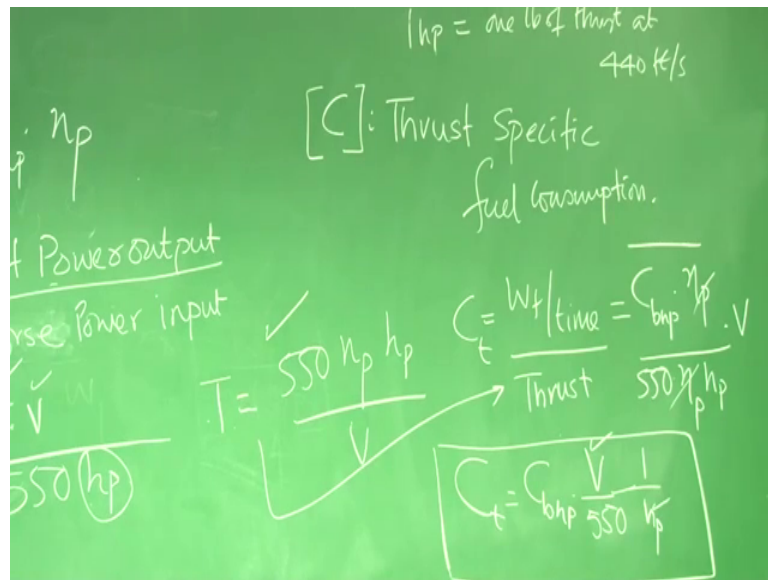 1hp = one lb of thrust at
440 ft/s
[C]: Thrust Specific
fuel Consumption.
p. ηp
Power output
orse Power input
V
550 (hp)
T = 550 ηp hp / V
Ct = Wt/time / Thrust = Cbhp . ηp . V / 550 ηp hp
Ct = Cbhp . V/550 1/ηp